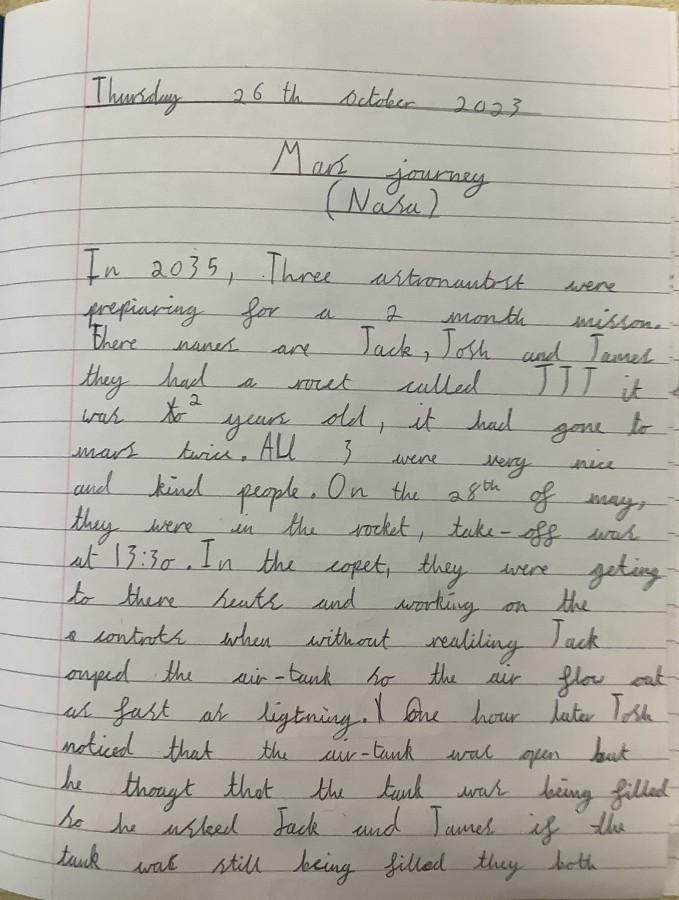 Thursday 26th October 2023
Mars journey
(Nasa)
In 2035, Three astronautst were
prepiaring for a 2 month misson.
There names are Jack, Josh and James
they had a rocet called JJJ it
was 2 years old, it had gone to
mars twice. All 3 were very nice
and kind people. On the 28th of may,
they were in the rocket, take-off was
at 13:30. In the copet, they were geting
to there seats and working on the
controls when without realiling Jack
onped the air-tank so the air flow out
as fast as ligtning. One hour later Josh
noticed that the air-tank was open but
he thougt that the tank was being filled
so he asked Jack and James if the
tank was still being filled they both